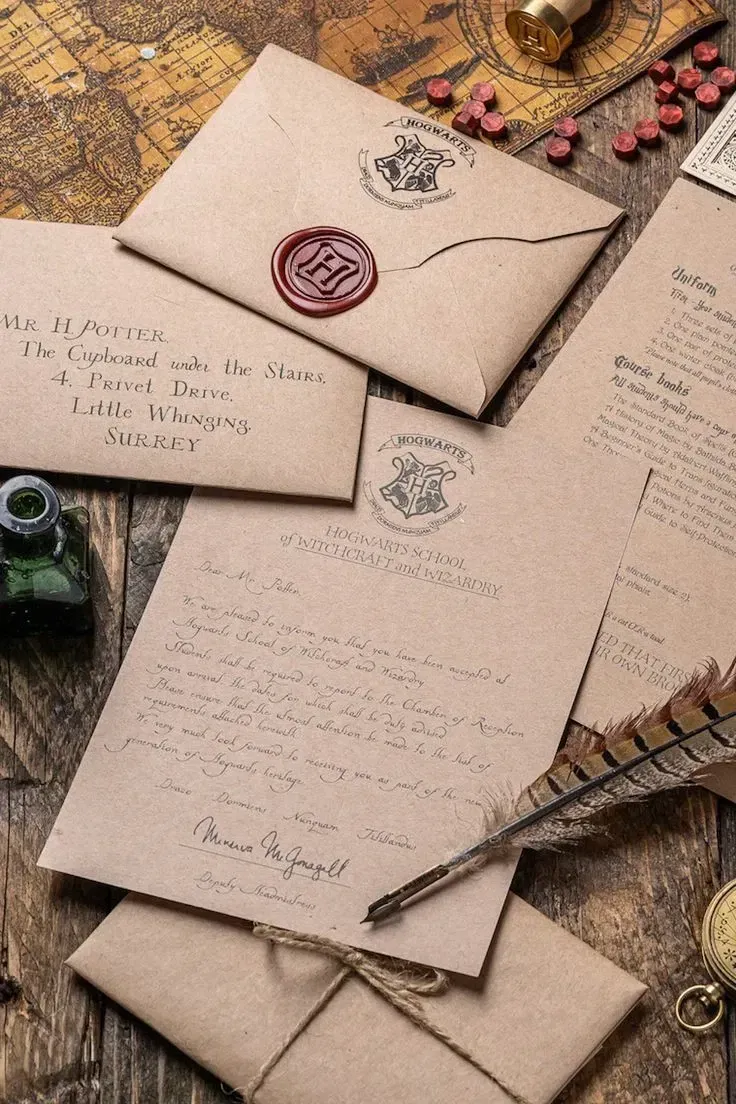 HOGWARTS
H
MR H POTTER
The Cupboard under the Stairs,
4, Privet Drive,
Little Whinging,
SURREY
HOGWARTS
DRACO DORMIENS NUNQUAM TITILLANDUS
HOGWARTS SCHOOL
of WITCHCRAFT and WIZARDRY
Dear Mr. Potter,
We are pleased to inform you that you have been accepted at
Hogwarts School of Witchcraft and Wizardry.
Students shall be required to report to the Chamber of Reception
upon arrival, the dates for which shall be duly advised.
Please ensure that the utmost attention be made to the list of
requirements attached herewith.
We very much look forward to receiving you as part of the new
generation of Hogwarts heritage.
Draco Dormiens Nunquam Titillandus
Minerva McGonagall
Deputy Headmistress
Uniform
First-Year Students
1. Three sets of
2. One plain pointed
3. One pair of prote
4. One winter cloak
Course books
All Students should have a copy of
The Standard Book of Spells
A History of Magic by Bathilda
Magical Theory by Adalbert Waffling
A Beginner's Guide to Transfiguration
One Tho
ical Herbs and Fun
Potions by Arsenius
Where to Find Them
Guide to Self-Protection
standard size 2)
tal phials
OR a cat OR a toad
D THAT FIRS
IR OWN BRO